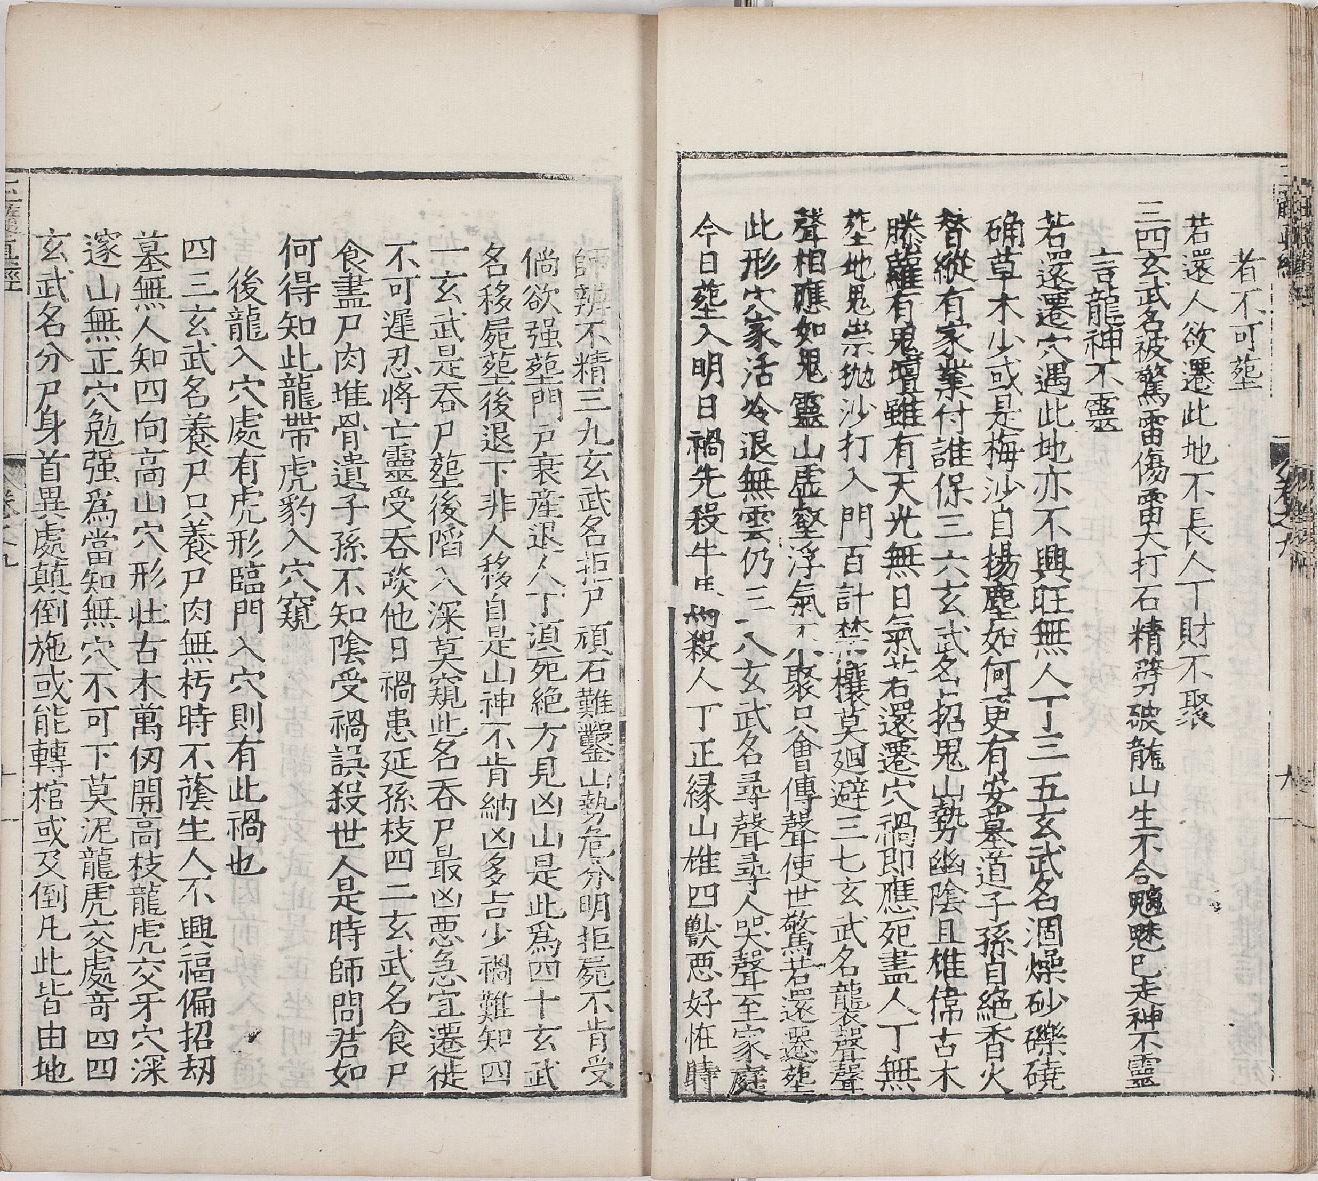 者不可塟
若還人欲遷此地不長人丁財不聚
三四玄武名被驚雷傷雷火打石精劈破龍山生不合魑魅已走神不靈
言龍神不靈
若還遷穴遇此地亦不興旺無人丁三五玄武名凋燥砂礫磽
确草木少或是梅沙自揚塵如何更有安墓道子孫自絶香火
督縱有家業付誰保三六玄武名招鬼山勢幽陰且雄偉古木
滕蘿有鬼壇雖有天光無日氣若還遷穴禍即應死盡人丁無
塟地鬼祟拋沙打入門百計禁攘莫廻避三七玄武名襲聲聲
聲相應如鬼靈山虛壑浮氣不聚只會傳聲使世驚若還遷塟
此形穴家活冷退無雲仍三八玄武名尋聲尋人哭聲至家庭
今日塟入明日禍先殺牛後殺人丁正縁山雄四獸悪好恠時
師辨不精三九玄武名拒尸頑石難鑿山勢危分明拒屍不肯受
倘欲强塟門戸衰産退人丁滇死絶方見凶山是此爲四十玄武
名移屍塟後退下非人移自是山神不肯納凶多吉少禍難知四
一玄武是吞尸塟後陷入深莫窺此名吞尸最凶悪急宜遷徙
不可遲忍將亡靈受吞啖他日禍患延孫枝四二玄武名食尸
食盡尸肉堆骨遺子孫不知陰受禍誤殺世人是時師問君如
何得知此龍帶虎豹入穴窺
後龍入穴處有虎形臨門入穴則有此禍也
四三玄武名養尸只養尸肉無朽時不蔭生人不興福偏招刼
墓無人知四向高山穴形壯古木萬仞開高枝龍虎交牙穴深
邃山無正穴勉强爲當知無穴不可下莫泥龍虎交處奇四四
玄武名分尸身首異處顛倒施或能轉棺或及倒凡此皆由地
卷之九
九
卷之九
十一